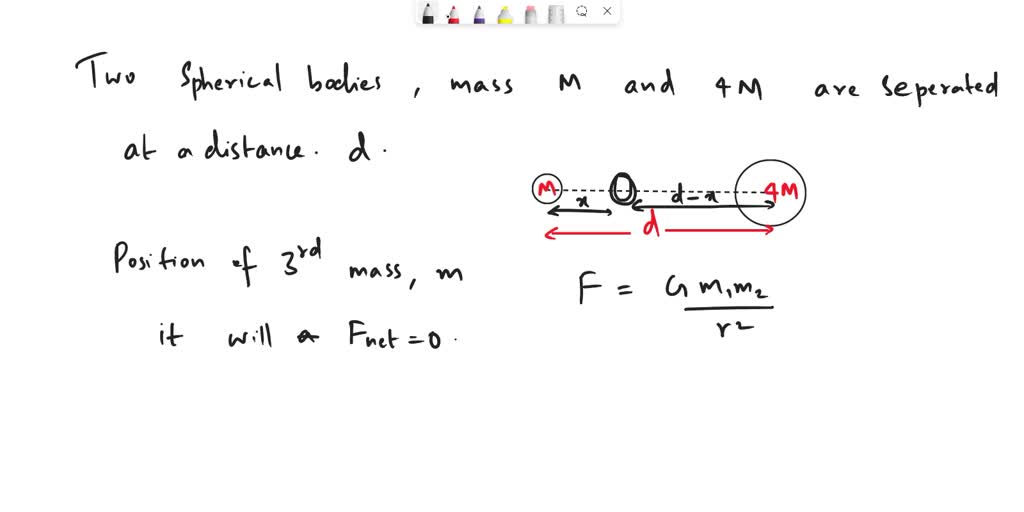 Two Spherical bodies, mass M and 4M are seperated
at a distance. d.
M 4M
x d-x
d
Position of 3rd mass, m
F = G m1m2
r2
it will Fnet=0.